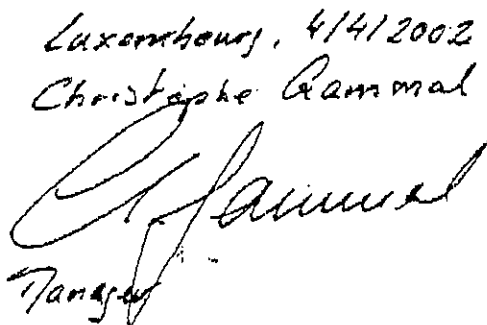 Luxembourg, 4/4/2002
Christophe Gammal
Ch. Gammal
Manager